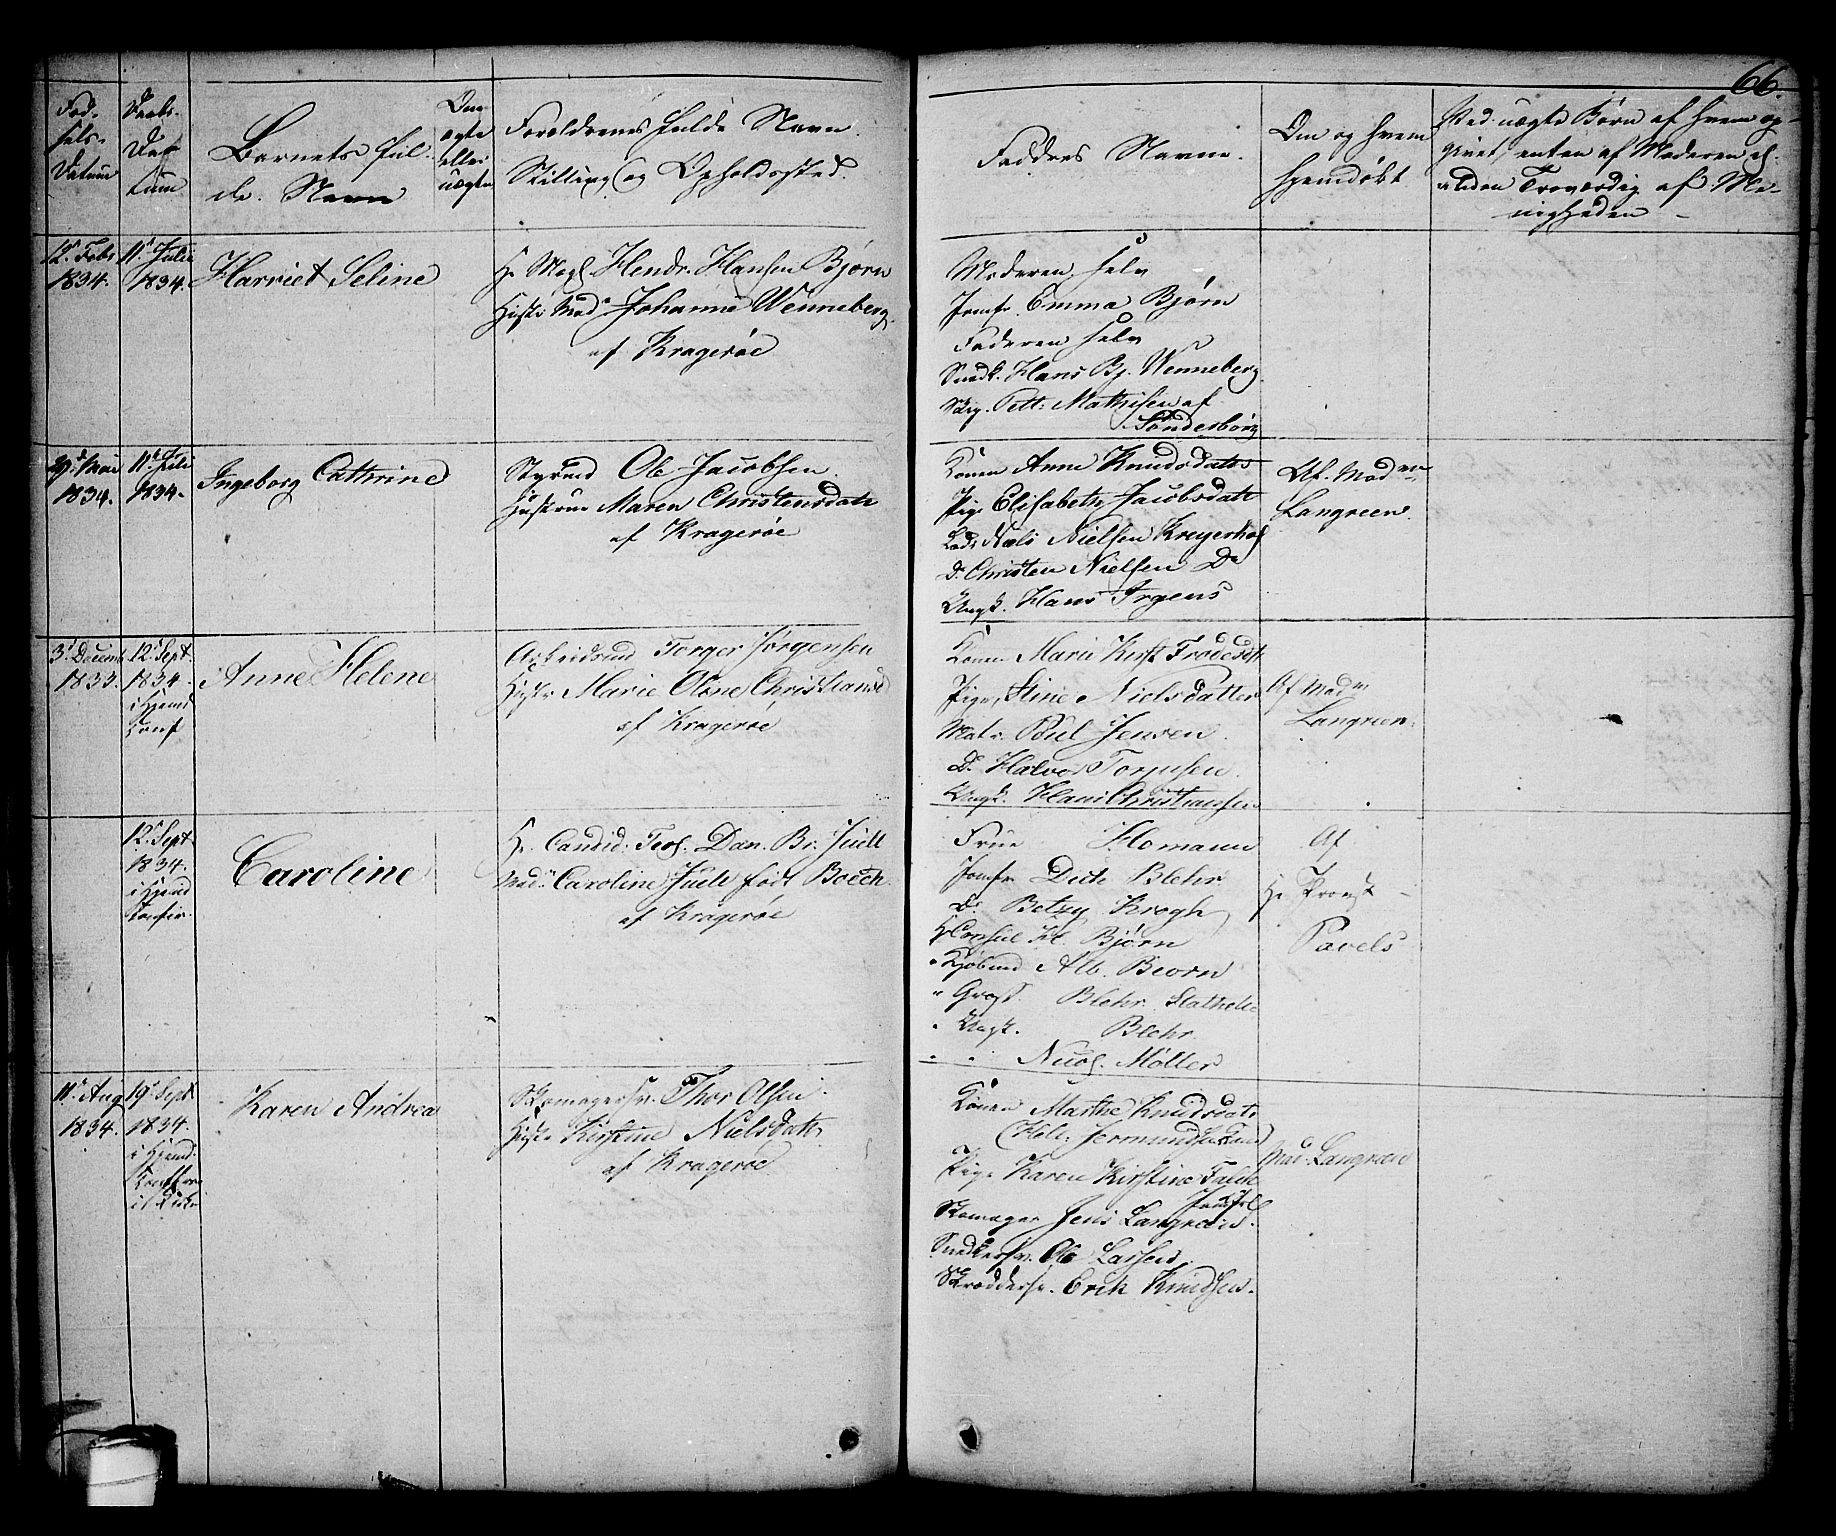 66.
Fød-
sels-
Datum
Daabs-
Da-
tum
Barnets ful-
de Navn
Om
ægte
eller
uægte
Forældrenes fulde Navn.
Stilling og Opholdssted.
Faddres Navne.
Om og hvem
hjemdøbt
Ved uægte Børn af hvem op-
givet, enten af Moderen el.
anden Troværdig af Me-
nigheden
12te Febr
1834.
11te Julii
1834.
Harriet Seline
Hr Mægl Hendr. Hansen Björn
Hustr Mad. Johanne Wenneberg
af Kragerøe
Moderen selv
Jomfr. Emma Bjørn
Faderen selv
Snedk. Hans Bj. Wenneberg
Pett: Mathisen af
Sønderborg
Mai
1834.
11te Juli
1834.
Ingeborg Cathrine
Styrmd Ole Jacobsen
Hustrue Maren Christensdatr
af Kragerøe
Konen Anne Knudsdatter
Pige Elisabeth Jacobsdatr
Lods Niels Nielsen Kreyerhol
Do Christen Nielsen Do
Ungk. Hans Irgens
Af Madm
Langreen.
3die Decemb
1833.
12te Sept.
1834.
i Hjemd
Conf
Anne Helene
Arbeidsmd Torger Jørgensen
Hustr Marie Olene Christiansd
af Kragerøe
Konen Marie Kirst Frodesdtr
Pige, Stine Nielsdatter
Matr. Poul Jensen.
Do Halvor Torjusen.
Ungk. Hans Christiansen
Af Madm
Langreen.
12te Sept.
1834.
i Hjemd
Confir.
Caroline
Hr Candid. Teol. Dan. Br. Juell
Mad. Caroline Juell født Boeck.
af Kragerøe
Frue Homann
Jomfr Ditte Blehr
Do Betzy Krogh
Hr Consul H. Bjørn
" Kjøbmd Alb. Beorn
" Gros. Blehr Stathelle
" Ungk. Blehr
" " Nicol. Møller
Af
Hr Provst
Pavels
11te Aug
1834.
19de Sept
1834.
i Hjemd.
Karen Andrea
Skomagersv. Thor Olsen
Hustr Kirstine Nielsdatr
af Kragerøe
Konen Marthe Knudsdatr
Pige Karen Kirstine Falck
Skomager Jens Langreen.
Snedkersv. Ole Larsen
Skræddersv. Erik Knudsen.
Mad. Langreen